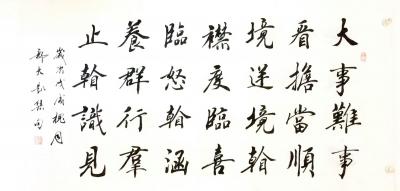 大事難事
看擔當順
境逆境看
襟度臨喜
臨怒看涵
養群行羣
止看識見
歲次戊戌桃月